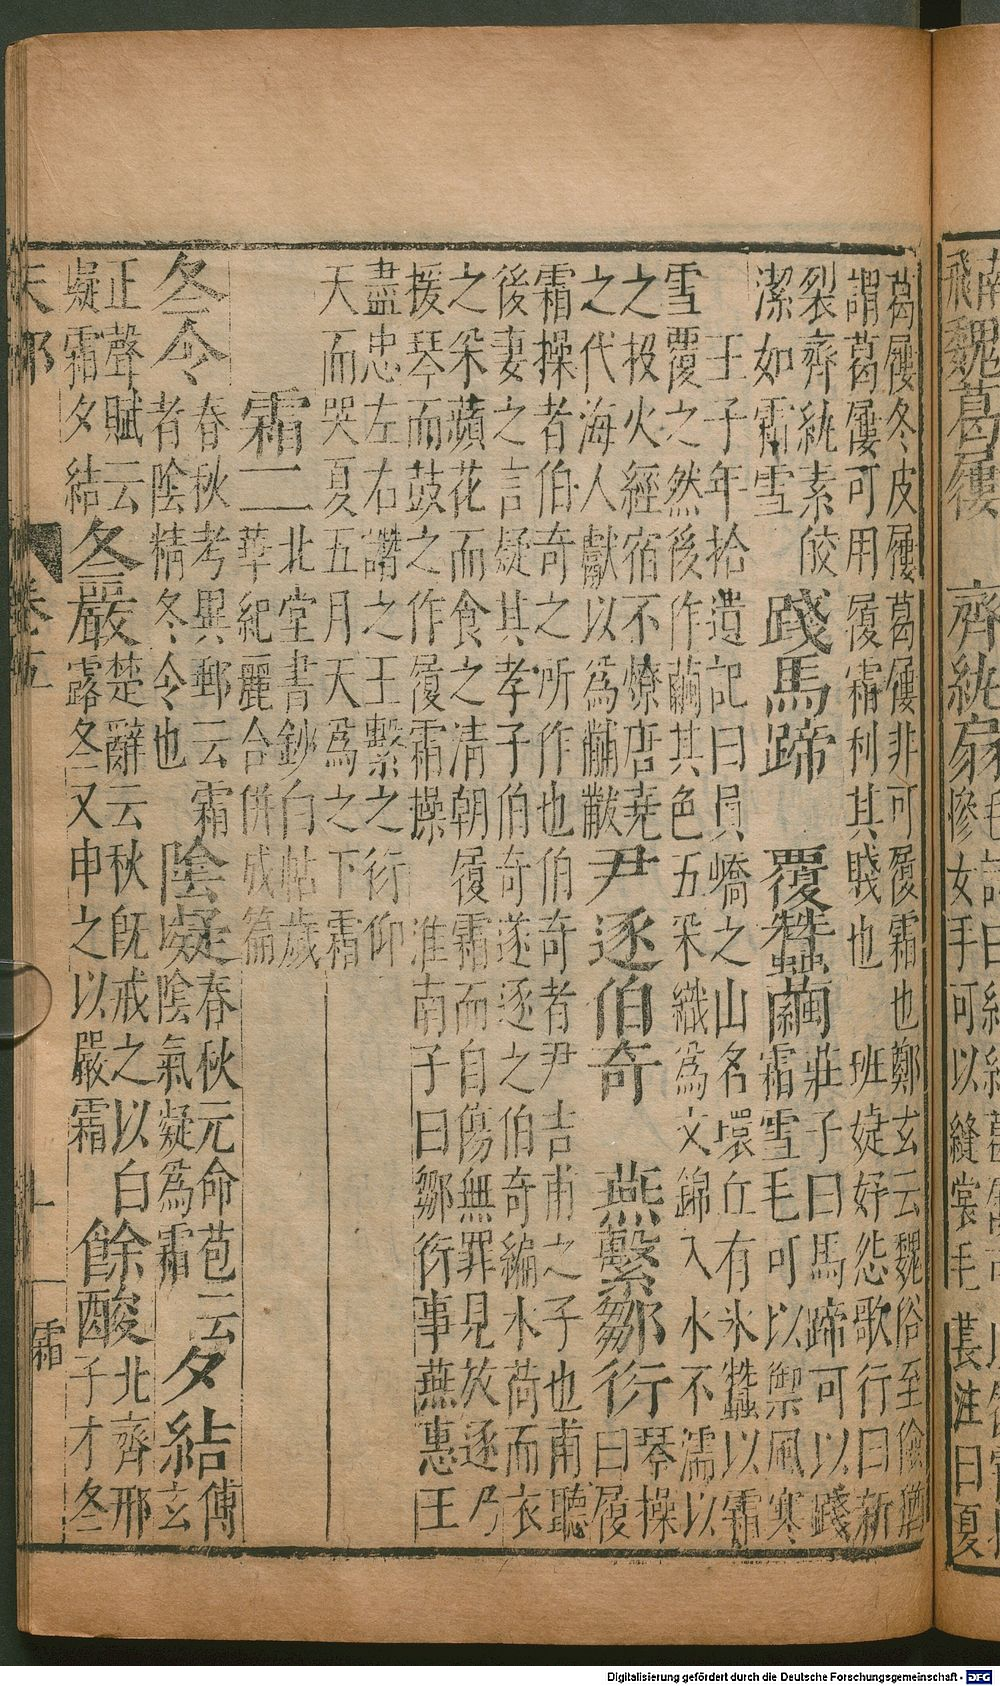 魏葛屨
齊紈
摻女手可以縫裳毛萇注曰夏
葛屨冬皮屨葛屨非可履霜也鄭玄云魏俗至儉猶
謂葛屨可用履霜利其賤也
班婕妤怨歌行曰新
裂齊紈素皎
潔如霜雪
踐馬蹄
覆蠶繭
莊子曰馬蹄可以踐
霜雪毛可以禦風寒
王子年拾遺記曰員嶠之山名環丘有氷蠶以霜
雪覆之然後作繭其色五采織為文錦入水不濡以
之投火經宿不燎唐堯
之代海人獻以為黼黻
尹逐伯奇
燕繫鄒衍
琴操
曰履
霜操者伯奇之所作也伯奇者尹吉甫之子也甫聽
後妻之言疑其孝子伯奇遂逐之伯奇編水荷而衣
之采蘋花而食之清朝履霜而自傷無罪見放逐乃
援琴而鼓之作履霜操
淮南子曰鄒衍事燕惠王
盡忠左右譖之王繫之衍仰
天而哭夏五月天為之下霜
霜二
北堂書鈔白帖歲
華紀麗合併成篇
冬令
春秋考異郵云霜
者陰精冬令也
陰凝
春秋元命苞云
以陰氣凝為霜
夕結
傅
玄
正聲賦云
凝霜夕結
冬嚴
楚辭云秋既戒之以白
露冬又申之以嚴霜
餘酸
北齊邢
子才冬
天部
卷五
霜
Digitalisierung gefördert durch die Deutsche Forschungsgemeinschaft - DFG